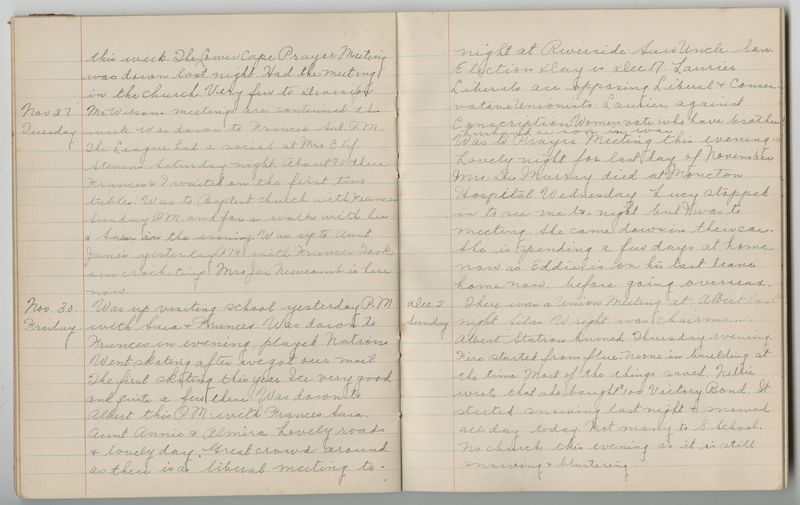 this week. The Lower Cape Prayer Meeting
was down last night. Had the meeting
in the church. Very few to Division
Nov 27 Mr Wilsons meetings are continued this
Tuesday week. Was down to Frances Sat. P.M.
The League had a social at Mrs Clif
Stevens Saturday night. About 80 there
Frances & I waited on the first two
tables. Was to Baptist church with Frances
Sunday P.M. and for a walk with her
& Sara in the evening. Was up to Aunt
Janie's yesterday P.M. with Frances. Took
our crocheting. Mrs Jae Newcomb is here
now.
Nov. 30 Was up visiting school yesterday P.M.
Friday with Sara & Frances. Was down to
Frances in evening, played Nations
Went skating after we got our mail
The first skating this year. Ice very good
and quite a few there. Was down to
Albert this P.M. with Frances Sara.
Aunt Annie & Almira. Lovely roads
& lovely day. Great crowd around
as there is a liberal meeting to-
night at Riverside. Saw Uncle San.
Election Day is Dec 17. Laurier
Liberals are opposing Liberal & Conser-
vative Unionists. Laurier against
Conscription. Women vote who have brother
husband or son in war.
Was to Prayer Meeting this evening.
Lovely night for last day of November
Mrs. Murray died at Moncton
Hospital Wednesday. Lucy stopped
in to see me to-night but I was to
meeting. She came down in their car.
She is spending a few days at home
now as Eddie is on his last leave
home now, before going overseas.
Dec. 2 There was a Union Meeting at Albert last
Sunday night. Silas Wright was chairman.
Albert Station burned Thursday evening.
Fire started from flue. No one in building at
the time. Most of the things saved. Nellie
wrote that she bought $100 Victory Bond. It
started snowing last night & snowed
all day today. Not many to S School.
No church this evening as it is still
snowing & blustering.